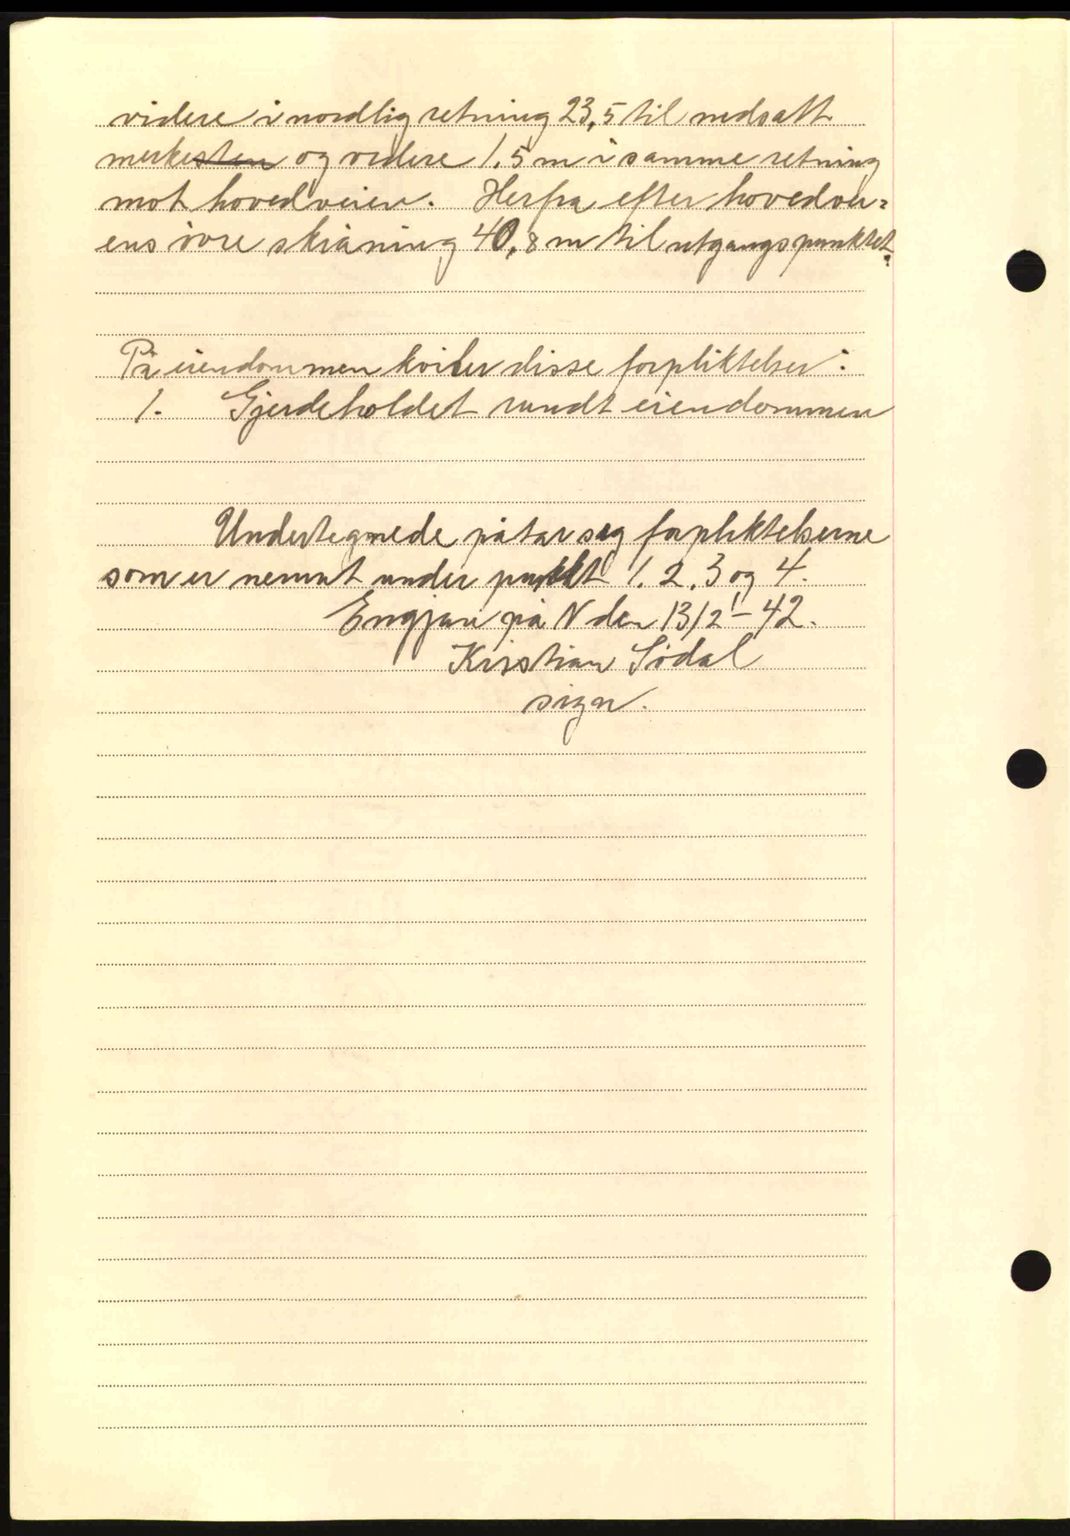 videre i nordlig retning 23,5 til nedsatt
merkesten og videre 1.5 m i samme retning
mot hovedveien. Herfra efter hovedvei=
ens ivre skråning 40,8 m til utgangspunktet.
På eiendommen hviler disse forpliktelser:
1. Gjerdeholdet rundt eiendommen
Undertegnede påtar seg forpliktelserne
som er nevnt under punkt 1. 2. 3 og 4.
Engjan på N den 13/2 - 42.
Kristian Södal
sign.